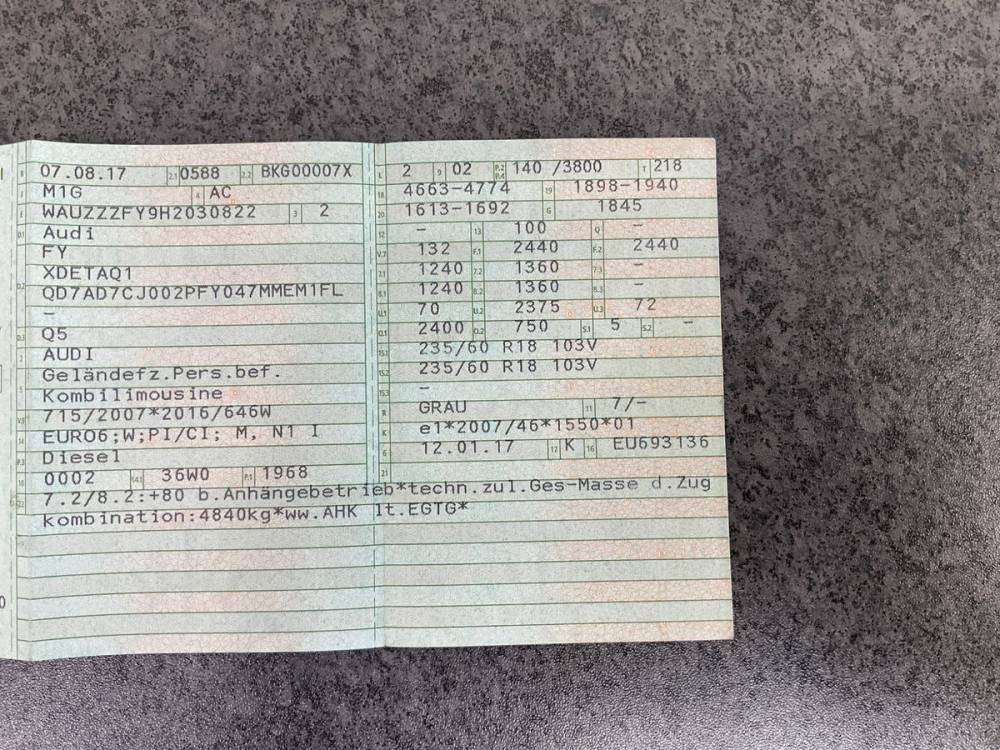 B 07.08.17 2.1 0588 2.2 BKG00007X L 2 9 02 P.2 P.4 140 /3800 T 218
J M1G 4 AC 18 4663-4774 19 1898-1940
E WAUZZZFY9H2030822 3 2 20 1613-1692 G 1845
D.1 Audi 12 - 13 100 Q -
FY V.7 132 F.1 2440 F.2 2440
D.2 XDETAQ1 7.1 1240 7.2 1360 7.3 -
QD7AD7CJ002PFY047MMEM1FL 8.1 1240 8.2 1360 8.3 -
- U.1 70 U.2 2375 U.3 72
D.3 Q5 O.1 2400 O.2 750 S.1 5 S.2 -
2 AUDI 15.1 235/60 R18 103V
5 Geländefz.Pers.bef. 15.2 235/60 R18 103V
Kombilimousine 15.3 -
V.9 715/2007*2016/646W R GRAU 11 7/-
14 EURO6;W;PI/CI; M, N1 I K e1*2007/46*1550*01
P.3 Diesel 6 12.01.17 17 K 16 EU693136
10 0002 14.1 36W0 P.1 1968 21
22 7.2/8.2:+80 b.Anhängebetrieb*techn.zul.Ges-Masse d.Zug
kombination:4840kg*ww.AHK lt.EGTG*